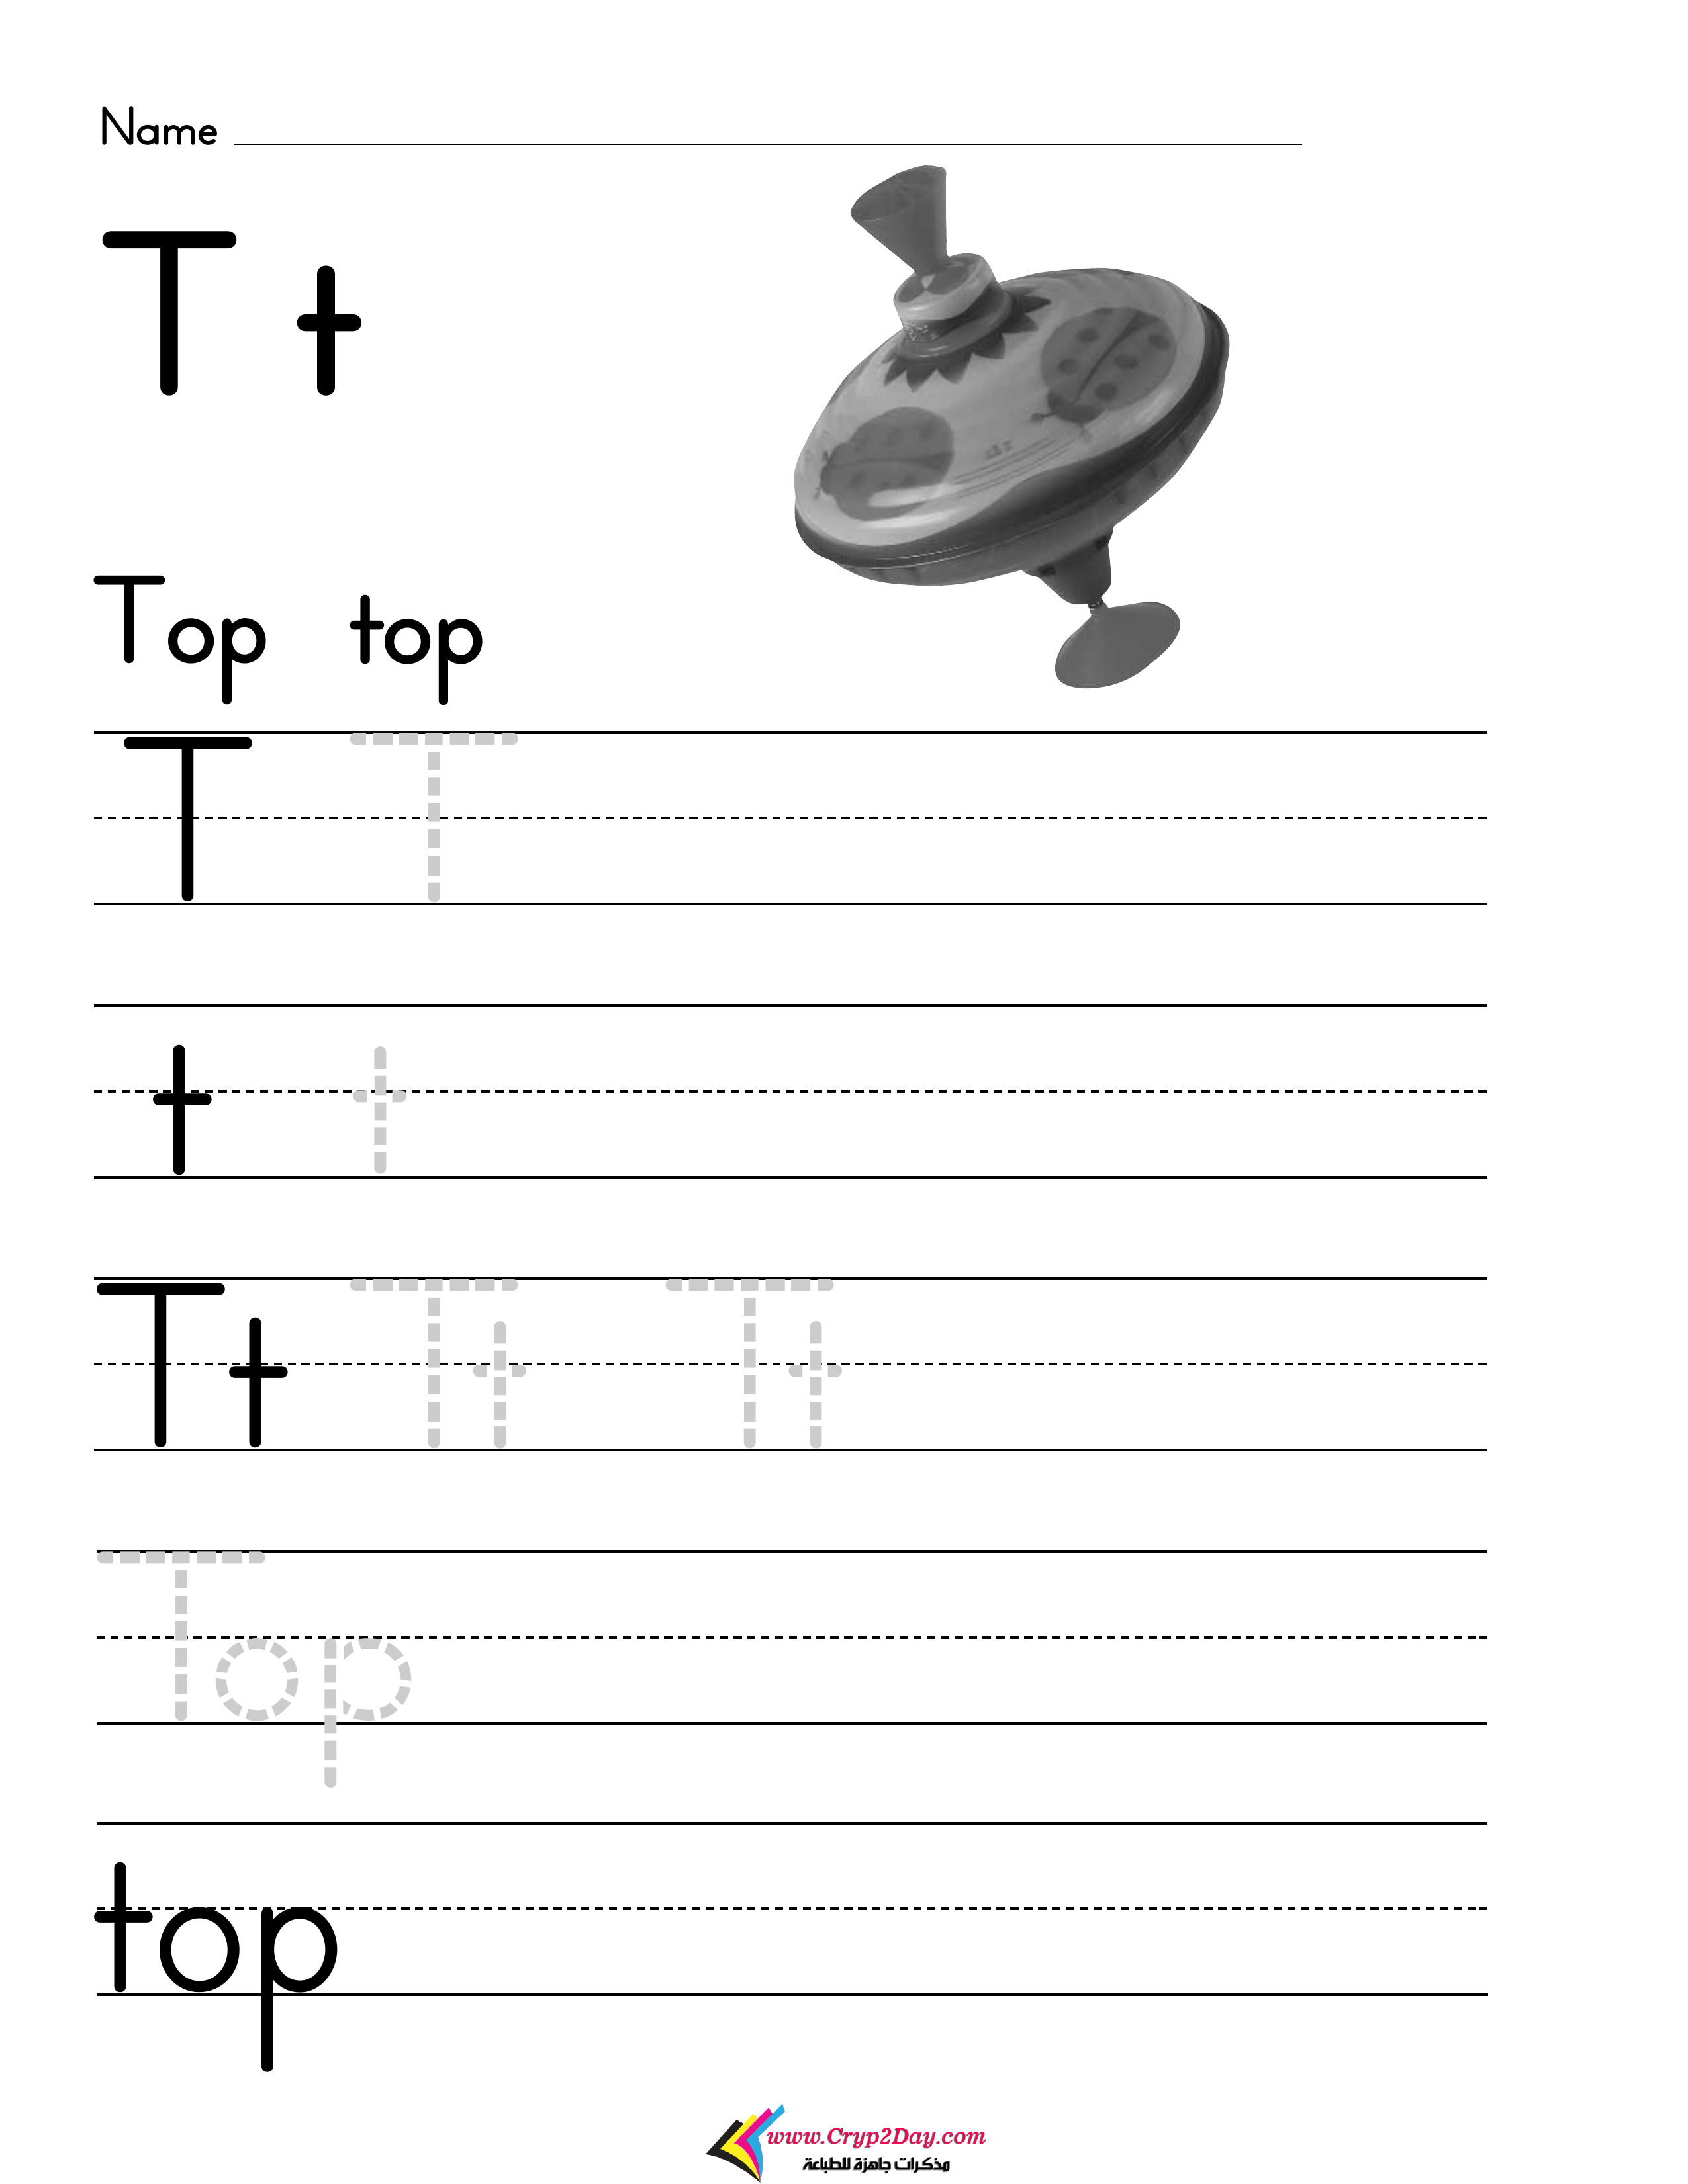 Name
T t
Top top
T T
t t
Tt Tt Tt
Top
top
www.Cryp2Day.com
مذكرات جاهزة للطباعة